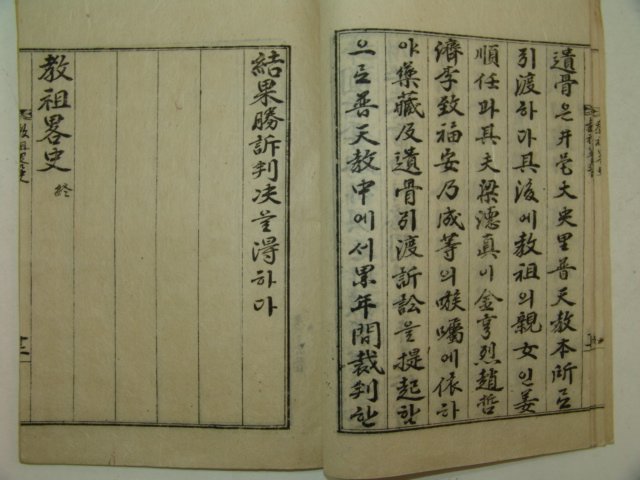 遺骨은井邑大興里普天教本所로
引渡하다其後에教祖의親女인姜
順任과其夫梁濦真이金亨烈趙哲
濟李致福安乃成等의嗾囑에依하
야藥藏及遺骨引渡訴訟을提起한
으로普天教中에서累年間裁判한
結果勝訴判决을得하다
教祖畧史 終
教祖畧史